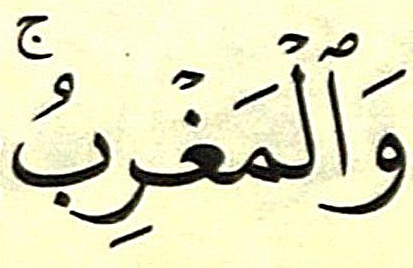 وَٱلۡمَغۡرِبُۚ